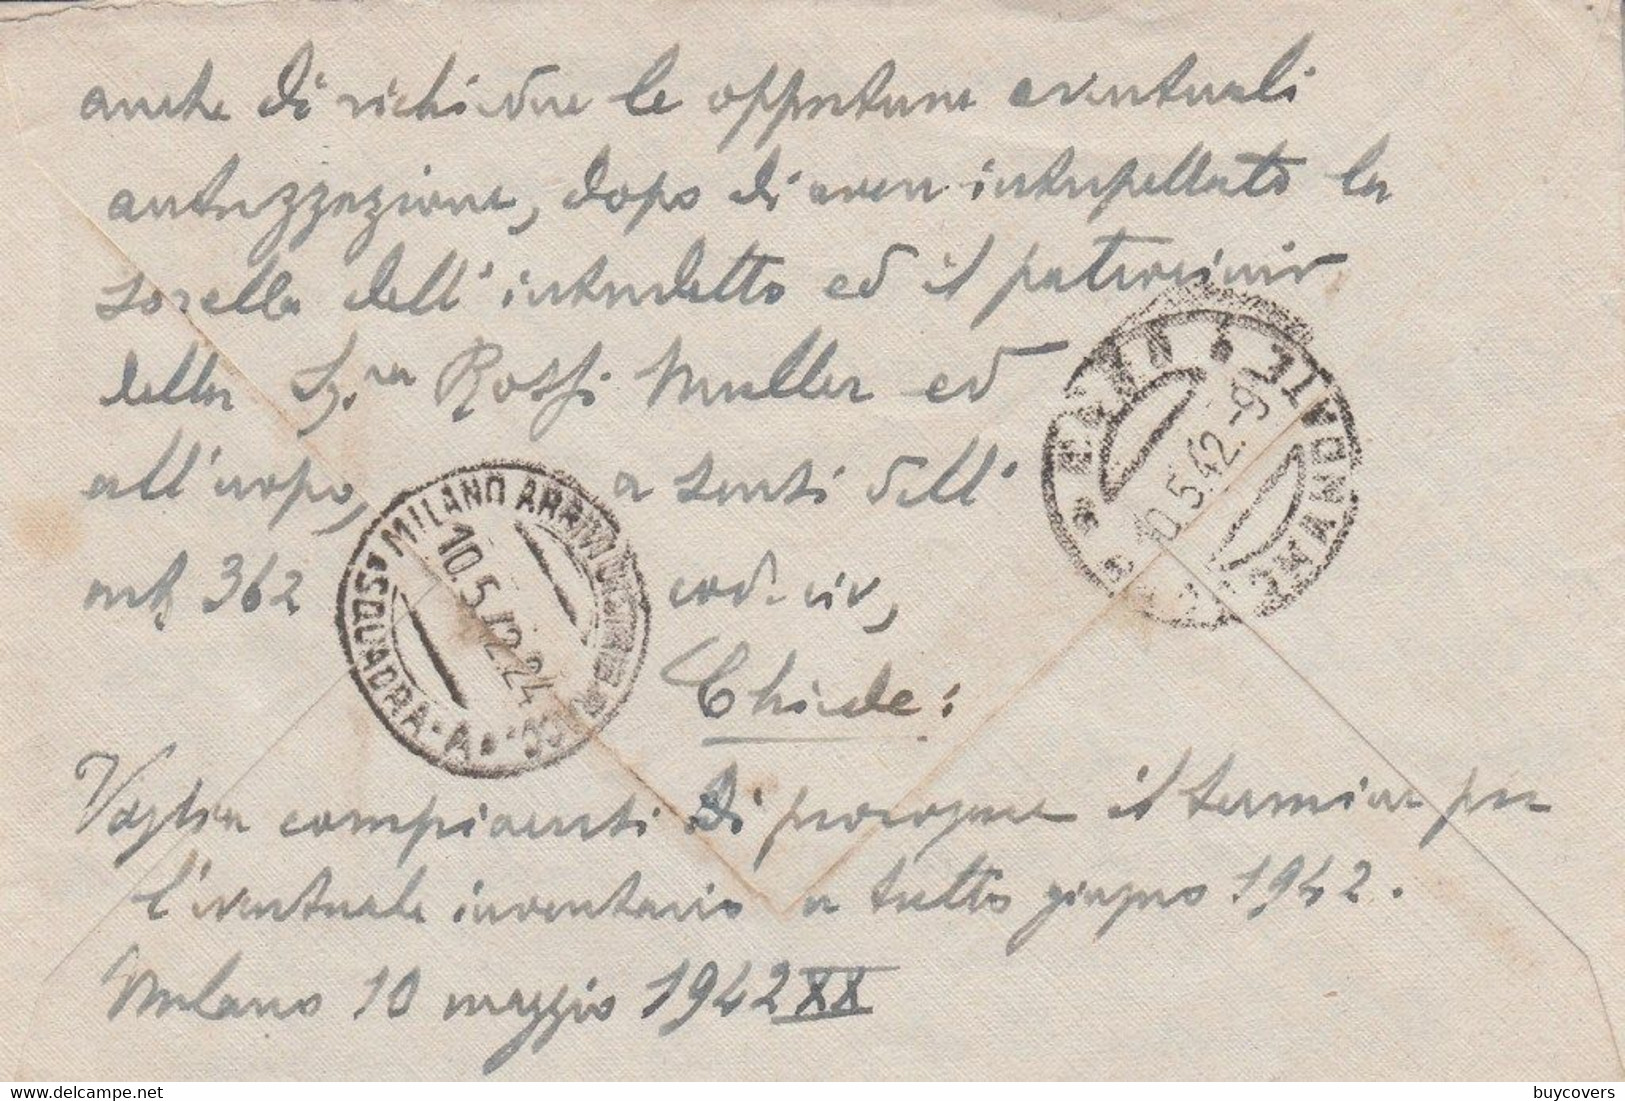 anche di richiedere le opportune eventuali
autorizzazione, dopo di aver interpellato la
sorella dell'interdetto ed il patrocinio
della Sig.ra Rossi Muller ed
all'uopo, a sensi dell'
art 362 cod. civ,
Chiede:
Voglia compiacersi di prorogare il termine per
l'eventuale inventario a tutto giugno 1942.
Milano 10 maggio 1942 XX
MILANO ARRIVI
10.5.42.24
SQUADRA·A·
RACCOMANDATE
10.5.42.-9
buycovers